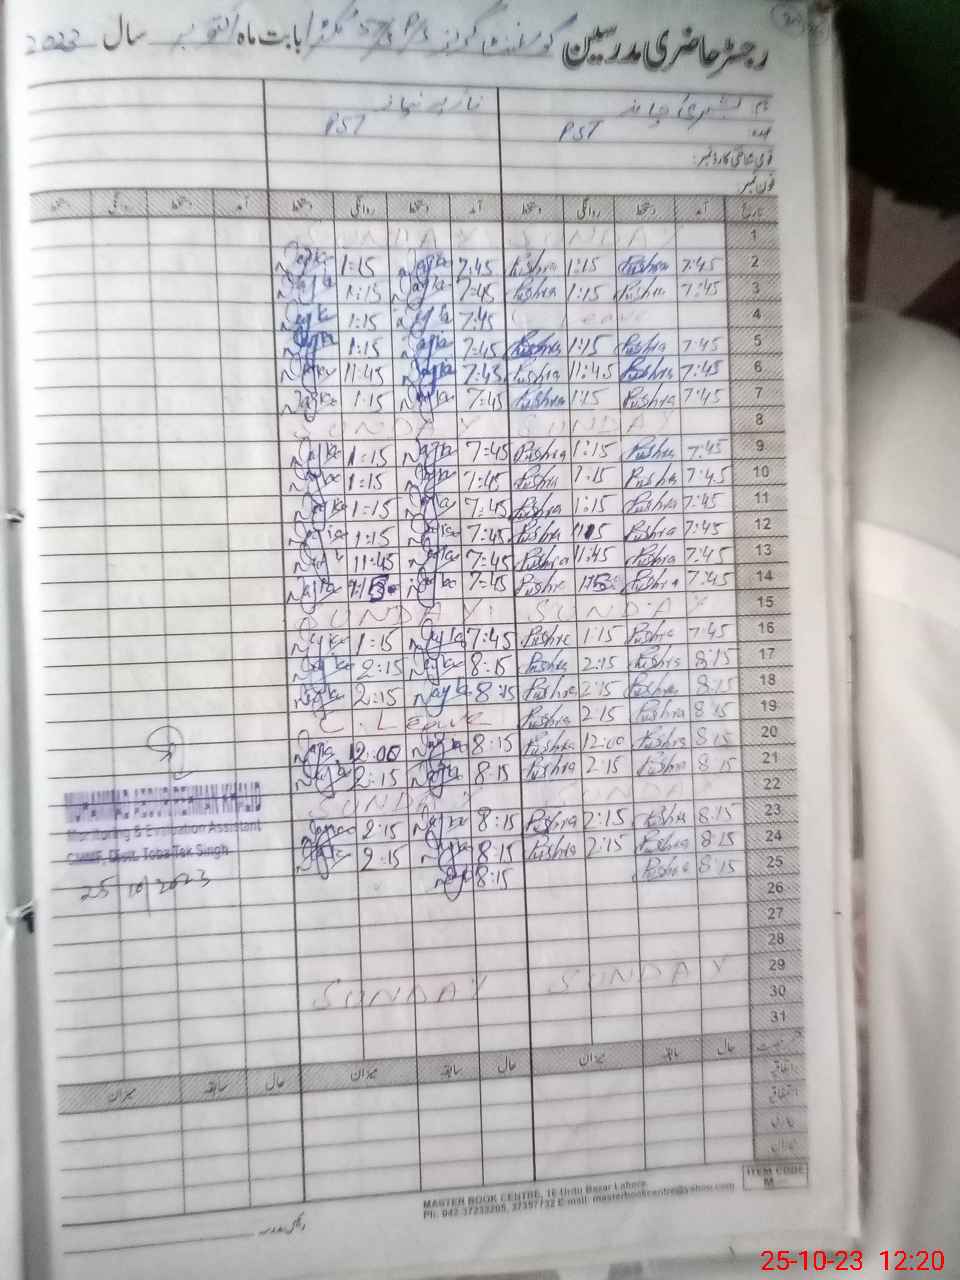 رجسٹر حاضری مدرسین گورنمنٹ گرلز P/S بابت ماہ اکتوبر سال 2023
نام
عہدہ PST PST
قومی شناختی کارڈ نمبر:
فون نمبر
تاریخ آمد دستخط روانگی دستخط آمد دستخط روانگی دستخط آمد دستخط روانگی دستخط
1 SUNDAY SUNDAY
2 7:45 Bushra 1:15 Bushra 7:45 Najka 1:15 Najka
3 7:45 Bushra 1:15 Bushra 7:45 Najka 1:15 Najka
4 Leave 7:45 Najka 1:15 Najka
5 7:45 Bushra 1:15 Bushra 7:45 Najka 1:15 Najka
6 7:45 Bushra 11:45 Bushra 7:45 Najka 11:45 Najka
7 7:45 Bushra 1:15 Bushra 7:45 Najka 1:15 Najka
8 SUNDAY SUNDAY
9 7:45 Bushra 1:15 Bushra 7:45 Najka 1:15 Najka
10 7:45 Bushra 1:15 Bushra 7:45 Najka 1:15 Najka
11 7:45 Bushra 1:15 Bushra 7:45 Najka 1:15 Najka
12 7:45 Bushra 1:15 Bushra 7:45 Najka 1:15 Najka
13 7:45 Bushra 11:45 Bushra 7:45 Najka 11:45 Najka
14 7:45 Bushra 1:15 Bushra 7:45 Najka 1:15 Najka
15 SUNDAY SUNDAY
16 7:45 Bushra 1:15 Bushra 7:45 Najka 1:15 Najka
17 8:15 Bushra 2:15 Bushra 8:15 Najka 2:15 Najka
18 8:15 Bushra 2:15 Bushra 8:15 Najka 2:15 Najka
19 8:15 Bushra 2:15 Bushra C. Leave
20 8:15 Bushra 12:00 Bushra 8:15 Najka 12:00 Najka
21 8:15 Bushra 2:15 Bushra 8:15 Najka 2:15 Najka
22 SUNDAY SUNDAY
23 8:15 Bushra 2:15 Bushra 8:15 Najka 2:15 Najka
24 8:15 Bushra 2:15 Bushra 8:15 Najka 2:15 Najka
25 8:15 Bushra 8:15 Najka
26
27
28
29 SUNDAY SUNDAY
30
31
MUHAMMAD ABDUR REHMAN KHALID
Monitoring & Evaluation Assistant
CMMF, Distt. Toba Tek Singh
25/10/2023
حال سابقہ میزان حال سابقہ میزان حال سابقہ میزان
ITEM CODE
M
MASTER BOOK CENTRE, 16 Urdu Bazar Lahore.
Ph: 042 37233205, 37357732 E-mail: masterbookcentre@yahoo.com
25-10-23 12:20